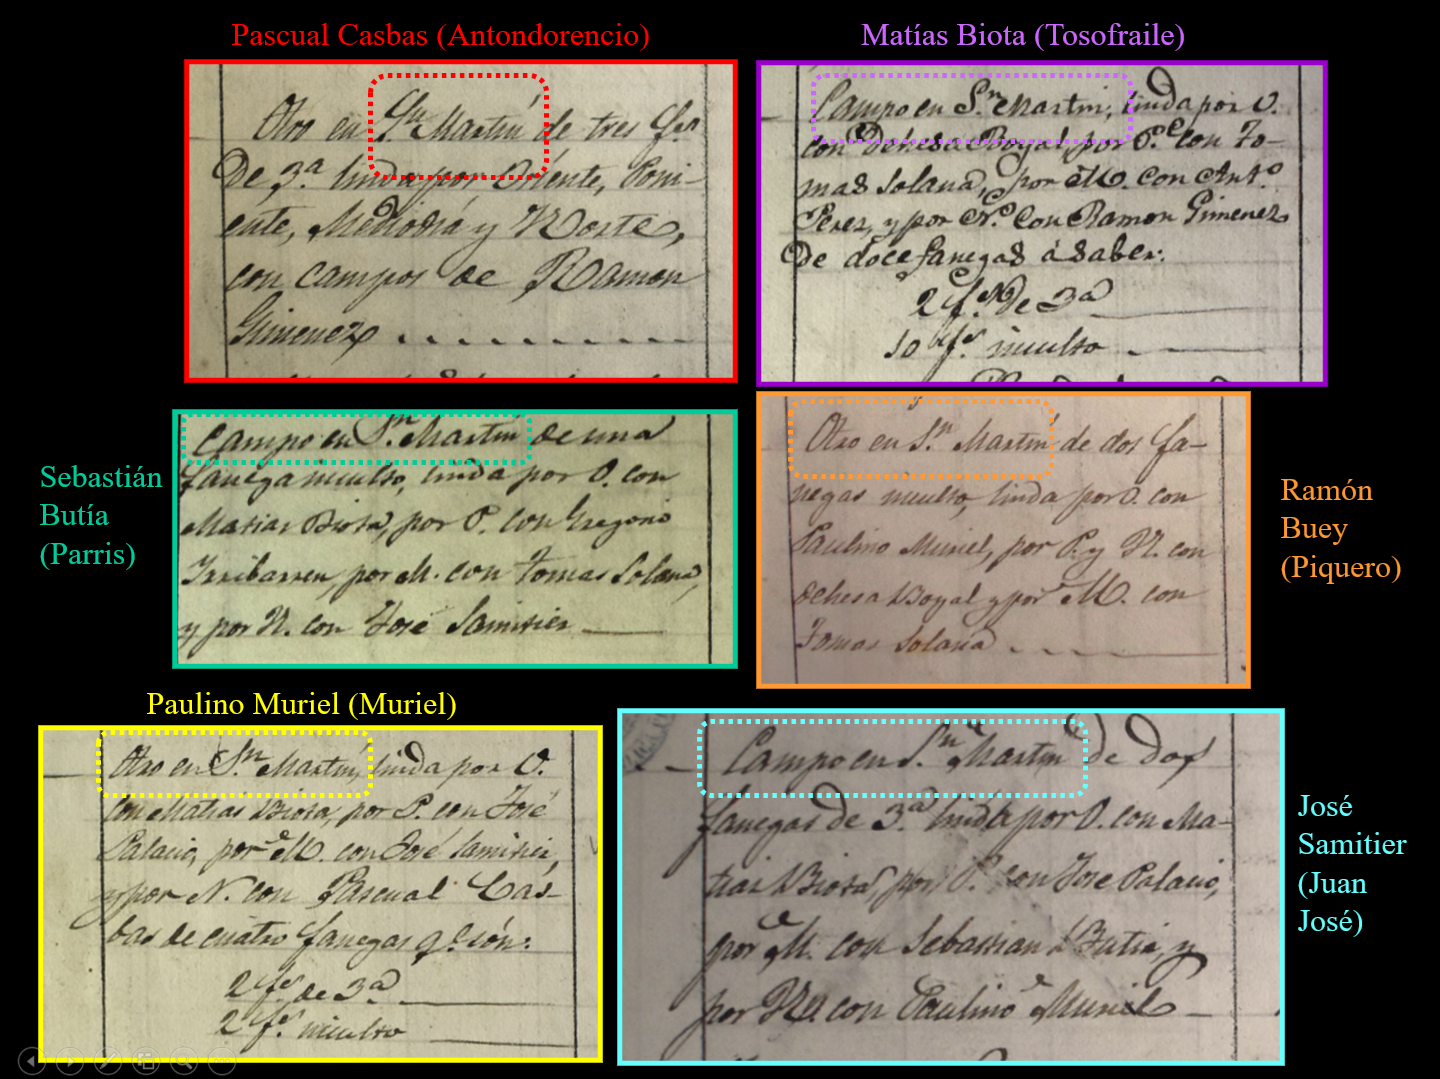 Pascual Casbas (Antondorencio)
Otro en Sn Martin de tres fans
de 3.a linda por Oriente, Poni-
ente, Mediodia y Norte,
con campos de Ramon
Gimenez
Matías Biota (Tosofraile)
Campo en Sn Martin, linda por O.
con Dehesa Boyal por P.e con To-
mas Solana, por M. con Ant.o
Perez, y por N.e con Ramon Gimenez
de doce fanegas á saber:
2 fs de 3a
10 fs inculto
Sebastián
Butía
(Parris)
Campo en Sn Martin de una
fanega inculto, linda por O. con
Matias Biota, por P. con Gregorio
Irribarren, por M. con Tomas Solana,
y por N. con José Samitier
Otro en Sn Martin de dos fa-
negas inculto, linda por O. con
Paulino Muriel, por P. y N. con
dehesa Boyal y por M. con
Tomas Solana
Ramón
Buey
(Piquero)
Paulino Muriel (Muriel)
Otro en Sn Martin, linda por O.
con Matias Biota, por P. con José
Palacio, por M. con José Samitier,
y por N. con Pascual Cas-
bas de cuatro fanegas q.e són:
2 fs de 3a
2 fs inculto
Campo en Sn Martin de dos
fanegas de 3.a linda por O. con Ma-
tias Biota, por P. con Jose Palacio,
por M. con Sebastian Butia, y
por N. con Paulino Muriel
José
Samitier
(Juan
José)